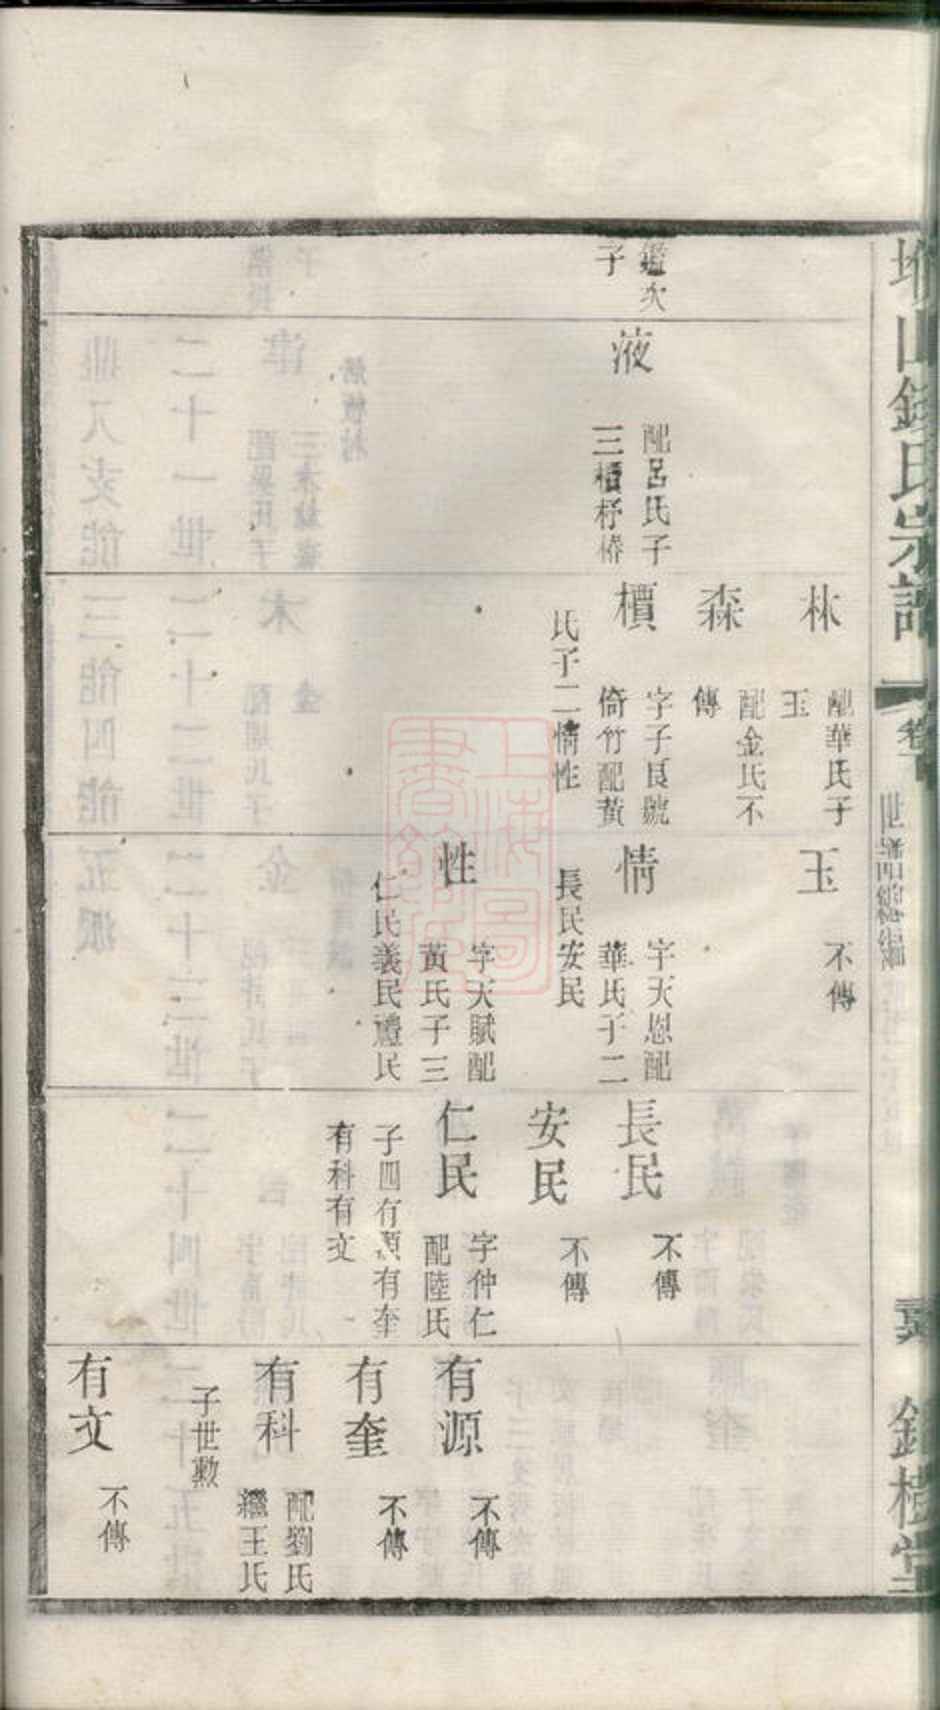 山錢氏宗譜
卷下
世譜總編
錢樹堂
鑑次
子
液
配呂氏子
三櫝杼椿
林
配華氏子
玉
森
配金氏不
傳
櫝
字子良號
倚竹配黃
氏子二情性
玉
不傳
情
字天恩配
華氏子二
長民安民
性
字天賦配
黃氏子三
仁民義民禮民
長民
不傳
安民
不傳
仁民
字仲仁
配陸氏
子四有源有奎
有科有文
有源
不傳
有奎
不傳
有科
配劉氏
繼王氏
子世勲
有文
不傳
上海圖書館藏